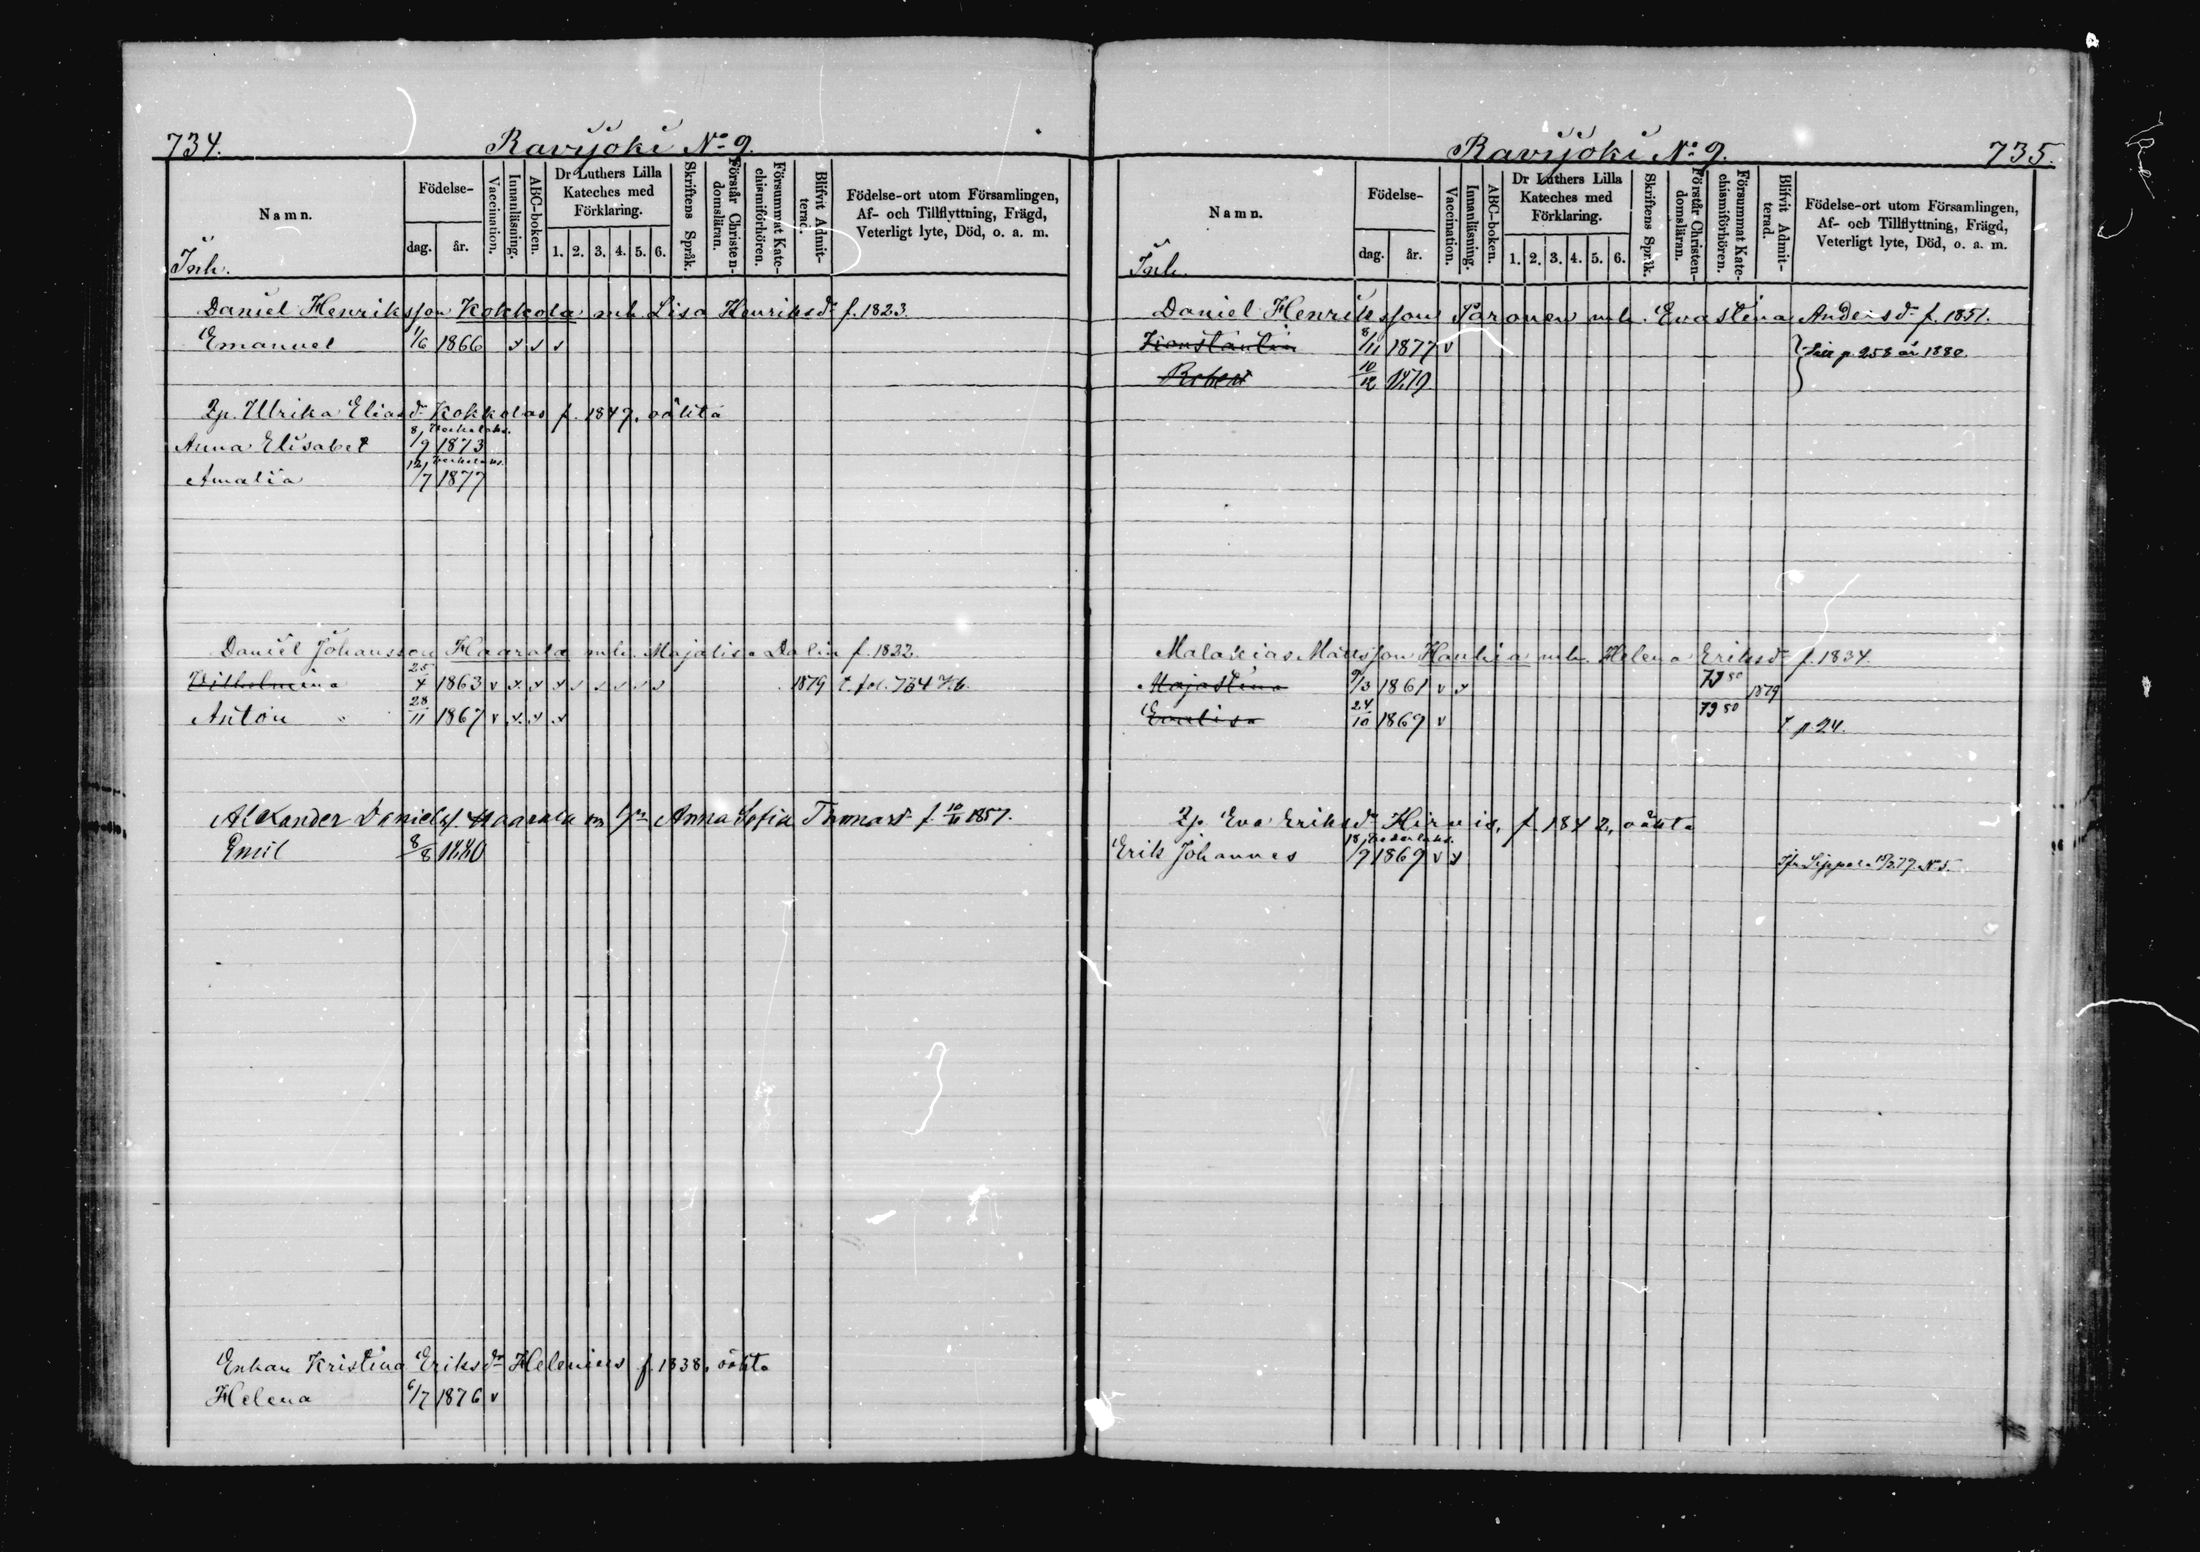 734. Ravijoki No 9.
Namn. Födelse- dag. år. Vaccination. Innanläsning. ABC-boken. Dr Luthers Lilla Kateches med Förklaring. 1. 2. 3. 4. 5. 6. Skriftens Språk. Förstår Christendomsläran. Försummat Katechismiförhören. Blifvit Admitterad. Födelse-ort utom Församlingen, Af- och Tillflyttning, Frägd, Veterligt lyte, Död, o. a. m.
Inh.
Daniel Henriksson Kokkola mh. Lisa Henriksdr f. 1823.
Emanuel 1/6 1866
Zp. Ulrika Eliasdr Kokkolas f. 1847, oäkta
Anna Elisabet 8/9 1873
Amalia 12/7 1877
Daniel Johansson Haarala mh. Majalisa Dalin f. 1822
Wilhelmina 25/4 1863 v 1879 t. fol. 764
Anton 28/11 1867 v
Alexander Daniels. Haarala m h Anna Sofia Thomasdr f. 10/11 1857.
Emil 8/8 1880
Enkan Kristina Eriksdr Helenius f. 1838, oäkta
Helena 6/7 1876 v
735. Ravijoki No 9.
Namn. Födelse- dag. år. Vaccination. Innanläsning. ABC-boken. Dr Luthers Lilla Kateches med Förklaring. 1. 2. 3. 4. 5. 6. Skriftens Språk. Förstår Christendomsläran. Försummat Katechismiförhören. Blifvit Admitterad. Födelse-ort utom Församlingen, Af- och Tillflyttning, Frägd, Veterligt lyte, Död, o. a. m.
Inh.
Daniel Henriksson Paronen mh. Evastina Andersdr f. 1851.
Konstantin 8/11 1877 v
Till p. 258 år 1880.
Robert 10/12 1879
Malakias Mattsson Hanhia mh. Helena Eriksdr f. 1834.
Majastina 9/3 1861 v 79 80 1879
Evalisa 24/10 1869 v 79 80 t p. 24.
Zp. Eva Eriksdr Hirvis, f. 1842, oäkta
Erik Johannes 18/9 1869 v